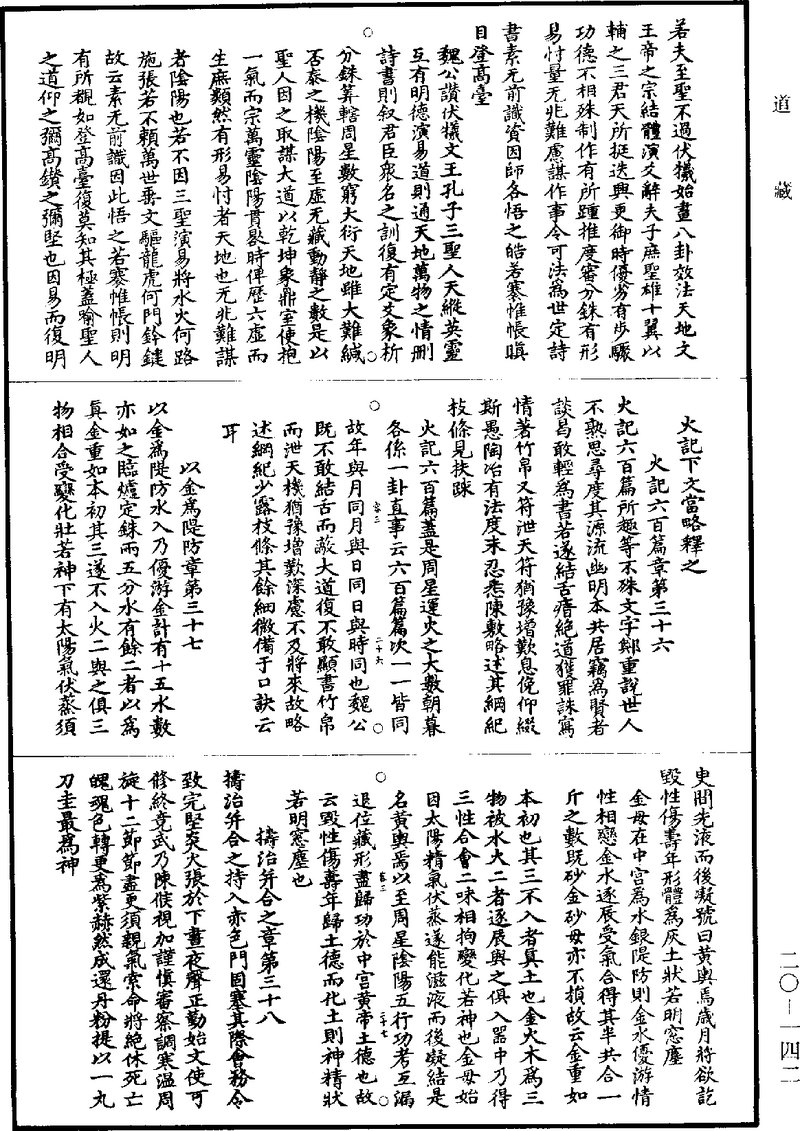 道藏
若夫至聖不過伏犧始畫八卦效法天地文
王帝之宗結體演爻辭夫子庶聖雄十翼以
輔之三君天所挺迭興更御時優劣有步驟
功德不相殊制作有所踵推度審分銖有形
易忖量无兆難慮謀作事令可法為世定詩
書素无前識資因師各悟之皓若褰帷帳瞋
目登高臺
魏公讚伏犧文王孔子三聖人天縱英靈
互有明德演易道則通天地萬物之情刪
詩書則叙君臣衆名之訓復有定爻象析
分銖筭轄周星數窮大衍天地雖大難緘
否泰之機陰陽至虛无藏動靜之數是以
聖人因之取謀大道以乾坤象鼎室使抱
一氣而宗萬靈陰陽貫晷時俾歷六虛而
生庶纇然有形易忖者天地也无兆難謀
者陰陽也若不因三聖演易將水火何路
施張若不賴萬世垂文驅龍虎何門鈐鍵
故云素无前識因此悟之若褰帷帳則明
有所覩如登高臺復莫知其極蓋喻聖人
之道仰之彌高鑽之彌堅也因易而復明
火記下文當略釋之
火記六百篇章第三十六
火記六百篇所趣等不殊文字鄭重說世人
不熟思尋度其源流幽明本共居竊為賢者
談曷敢輕為書若遂結舌瘖絶道獲罪誅寫
情著竹帛又符泄天符猶豫增歎息俛仰綴
斯愚陶冶有法度末忍悉陳敷略述其綱紀
枝條見扶踈
火記六百篇蓋是周星運火之大數朝暮
各係一卦直事云六百篇篇次一一皆同
故年與月同月與日同日與時同也魏公
既不敢結舌而蔽大道復不敢顯書竹帛
而泄天機猶豫增歎深慮不及將來故略
述綱紀少露枝條其餘細微備于口訣云
耳
以金為隄防章第三十七
以金為隄防水入乃優游金計有十五水數
亦如之臨爐定銖兩五分水有餘二者以為
真金重如本初其三遂不入火二與之俱三
物相合受變化壯若神下有太陽氣伏蒸須
臾間先液而後凝號曰黃輿焉歲月將欲訖
毀性傷壽年形體為灰土狀若明窓塵
金母在中宮為水銀隄防則金水優游情
性相戀金水逐辰受氣合得其半共合一
斤之數既砂金砂母亦不損故云金重如
本初也其三不入者真土也金火木為三
物被水火二者逐辰與之俱入器中乃得
三性合會二味相拘變化若神也金母始
因太陽精氣伏蒸遂能滋液而後凝結是
名黃輿焉以至周星陰陽五行功考互漏
退位藏形盡歸功於中宮黃帝土德也故
云毀性傷壽年歸土德而化土則神精狀
若明窓塵也
擣治并合之章第三十八
擣治并合之持入赤色門固塞其際會務令
致完堅炎火張於下晝夜聲正勤始文使可
修終竟武乃陳候視加謹慎審察調寒溫周
旋十二節節盡更須親氣索命將絶休死亡
魄魂色轉更為紫赫然成還丹粉提以一丸
刀圭最為神
二〇—一四二